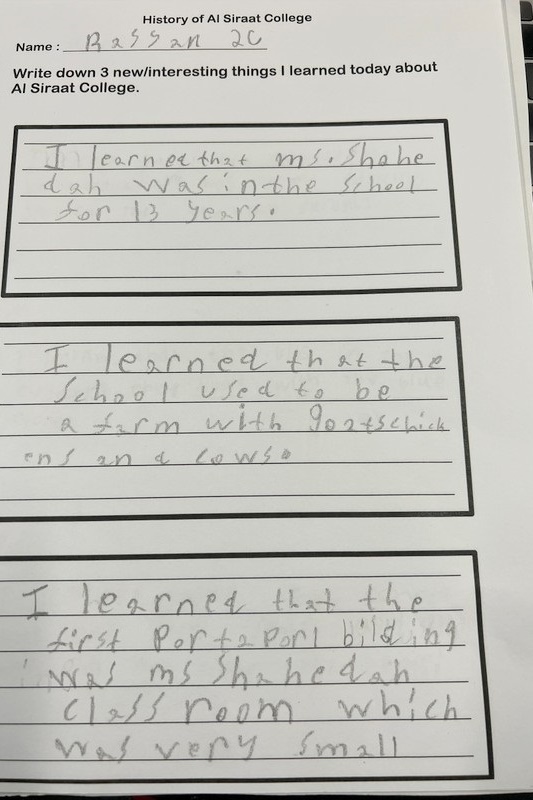 History of Al Siraat College
Name : Bassan 2C
Write down 3 new/interesting things I learned today about
Al Siraat College.
I learned that ms. Shahe
dah was in the school
for 13 years.
I learned that the
School used to be
a farm with goatschick
ens and cows.
I learned that the
first Portaporl bilding
was ms Shahedah
Classroom which
was very small